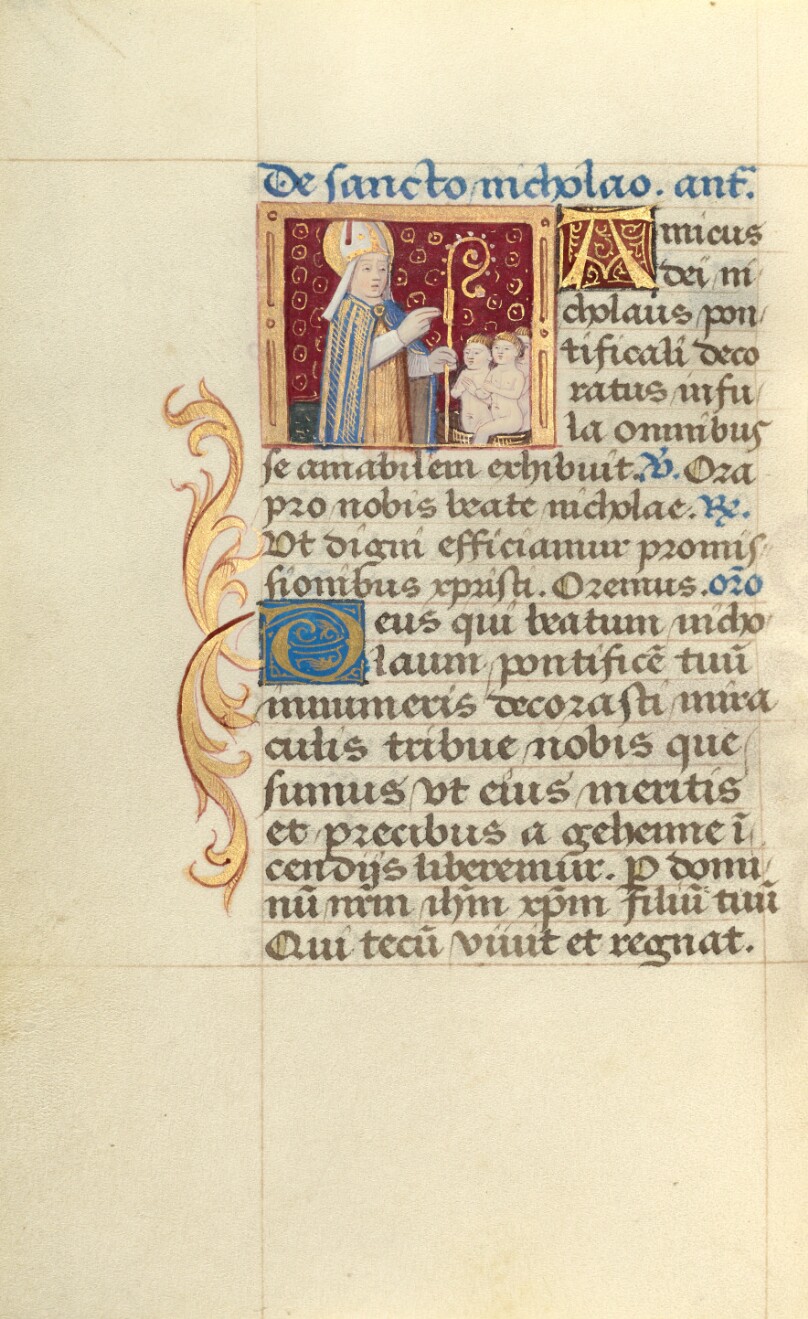 De sancto nicholao. ant̄.
Amicus
dei ni
cholaus pon
tificali deco
ratus infu
la omnibus
se amabilem exhibuit. V̷. Ora
pro nobis beate nicholae. R̷.
Vt digni efficiamur promis
sionibus xpristi. Oremus. orō
Deus qui beatum nicho
laum pontificē tuū
innumeris decorasti mira
culis tribue nobis que
sumus vt eius meritis
et precibus a gehenne ī
cendijs liberemur. P domi
nū nr̄m ih̄m xp̄m filiū tuū
Qui tecū viuit et regnat.